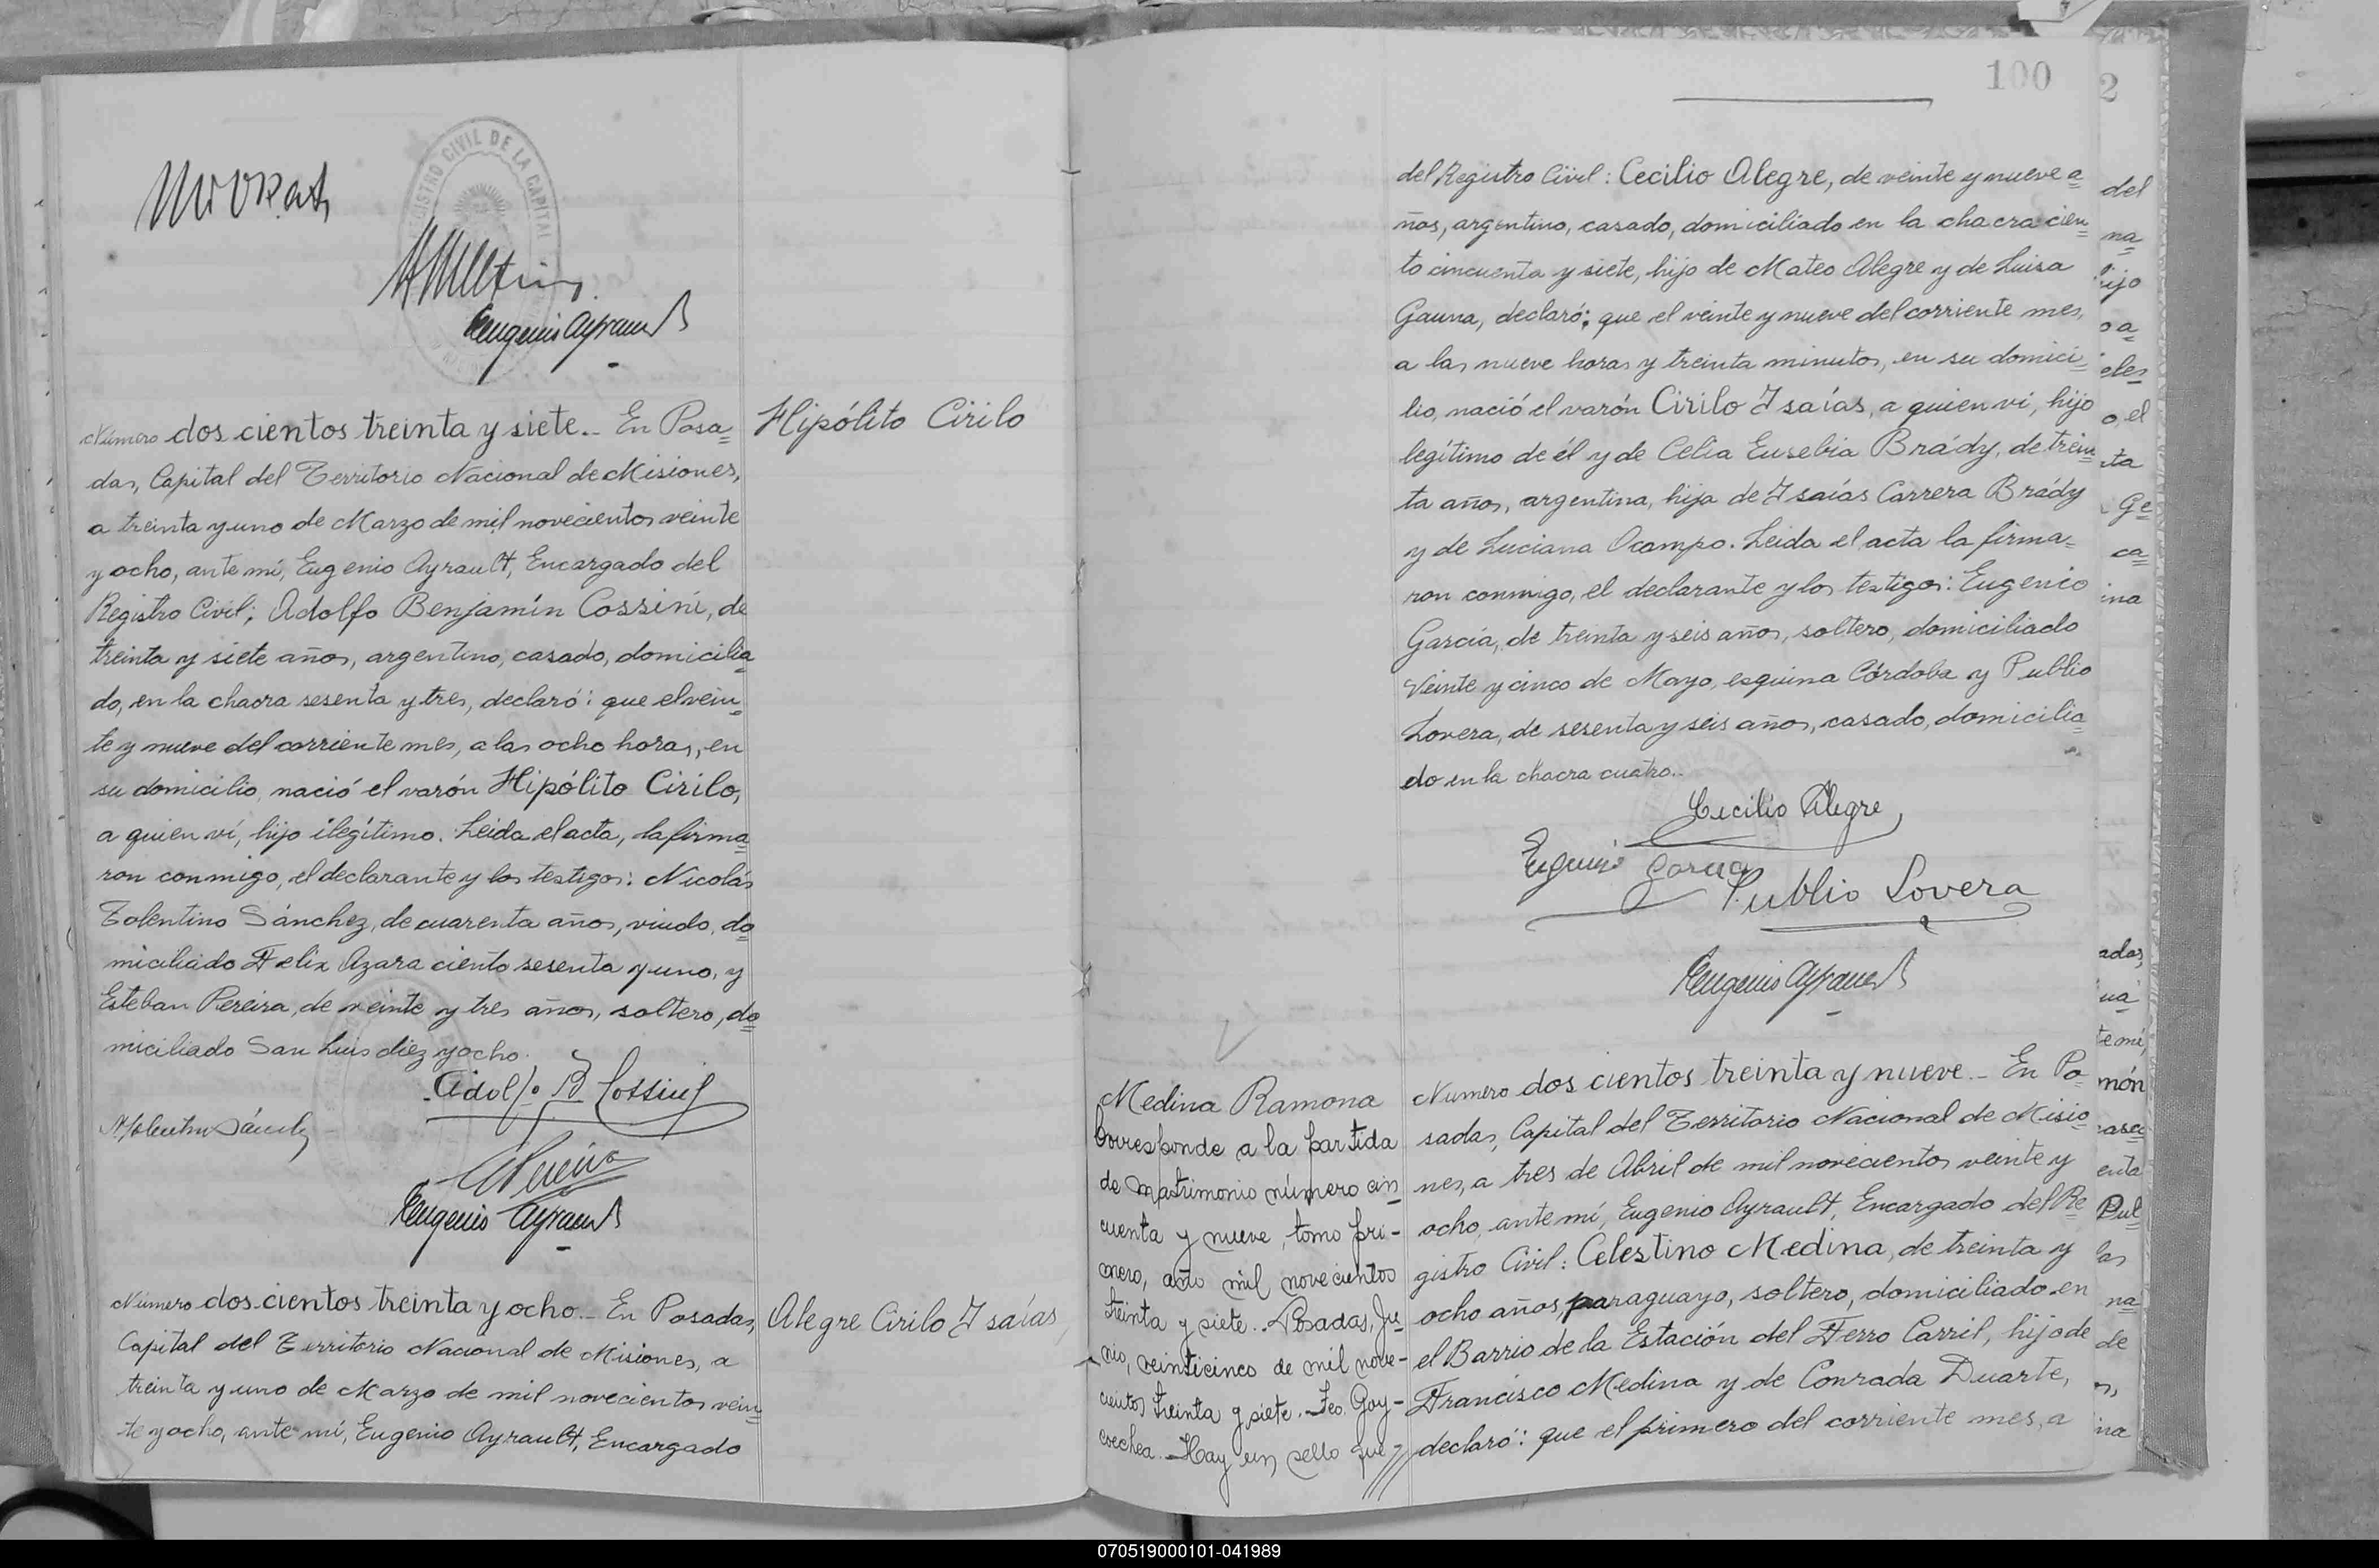 REGISTRO CIVIL DE LA CAPITAL
Eugenio Ayrault
Número dos cientos treinta y siete.- En Posa=
das, Capital del Territorio Nacional de Misiones,
a treinta y uno de Marzo de mil novecientos veinte
y ocho, ante mí, Eugenio Ayrault, Encargado del
Registro Civil; Adolfo Benjamín Cossini, de
treinta y siete años, argentino, casado, domicilia=
do, en la chacra sesenta y tres, declaró: que el vein=
te y nueve del corriente mes, a las ocho horas, en
su domicilio, nació el varón Hipólito Cirilo,
a quien ví, hijo ilegítimo. Leida el acta, la firma=
ron conmigo, el declarante y los testigos: Nicolás
Tolentino Sánchez, de cuarenta años, viudo, do=
miciliado Felix Azara ciento sesenta y uno, y
Esteban Pereira, de veinte y tres años, soltero, do=
miciliado San Luis diez y ocho.
Hipólito Cirilo
Adolfo B Cossini
N. Tolentino Sánchez
E Pereira
Eugenio Ayrault
Número dos cientos treinta y ocho.- En Posadas,
Capital del Territorio Nacional de Misiones, a
treinta y uno de Marzo de mil novecientos vein=
te y ocho, ante mí, Eugenio Ayrault, Encargado
Alegre Cirilo Isaías
100
del Registro Civil: Cecilio Alegre, de veinte y nueve a=
ños, argentino, casado, domiciliado en la chacra cien=
to cincuenta y siete, hijo de Mateo Alegre y de Luisa
Gauna, declaró: que el veinte y nueve del corriente mes,
a las nueve horas y treinta minutos, en su domici=
lio, nació el varón Cirilo Isaías, a quien ví, hijo
legítimo de él y de Celia Eusebia Brády, de trein=
ta años, argentina, hija de Isaías Carrera Brády
y de Luciana Ocampo. Leida el acta la firma=
ron conmigo, el declarante y los testigos: Eugenio
García, de treinta y seis años, soltero, domiciliado
Veinte y cinco de Mayo, esquina Córdoba y Publio
Lovera, de sesenta y seis años, casado, domicilia=
do en la chacra cuatro.-
Cecilio Alegre
Eugenio Garcia
Publio Lovera
Eugenio Ayrault
Medina Ramona
Corresponde a la partida
de matrimonio número cin
cuenta y nueve, tomo pri-
mero, año mil novecientos
treinta y siete.- Posadas, Ju=
nio, veinticinco de mil nove-
cientos treinta y siete.- Feo. Goy-
cochea.- Hay un sello que //
Número dos cientos treinta y nueve.- En Po=
sadas, Capital del Territorio Nacional de Misio=
nes, a tres de Abril de mil novecientos veinte y
ocho, ante mí, Eugenio Ayrault, Encargado del Re=
gistro Civil: Celestino Medina, de treinta y
ocho años, paraguayo, soltero, domiciliado en
el Barrio de la Estación del Ferro Carril, hijo de
Francisco Medina y de Conrada Duarte,
declaró: que el primero del corriente mes, a
2
del
na=
hijo
o a=
o, el
ta
Ge=
ca=
ina
te mí,
món
las
na=
de
070519000101-041989